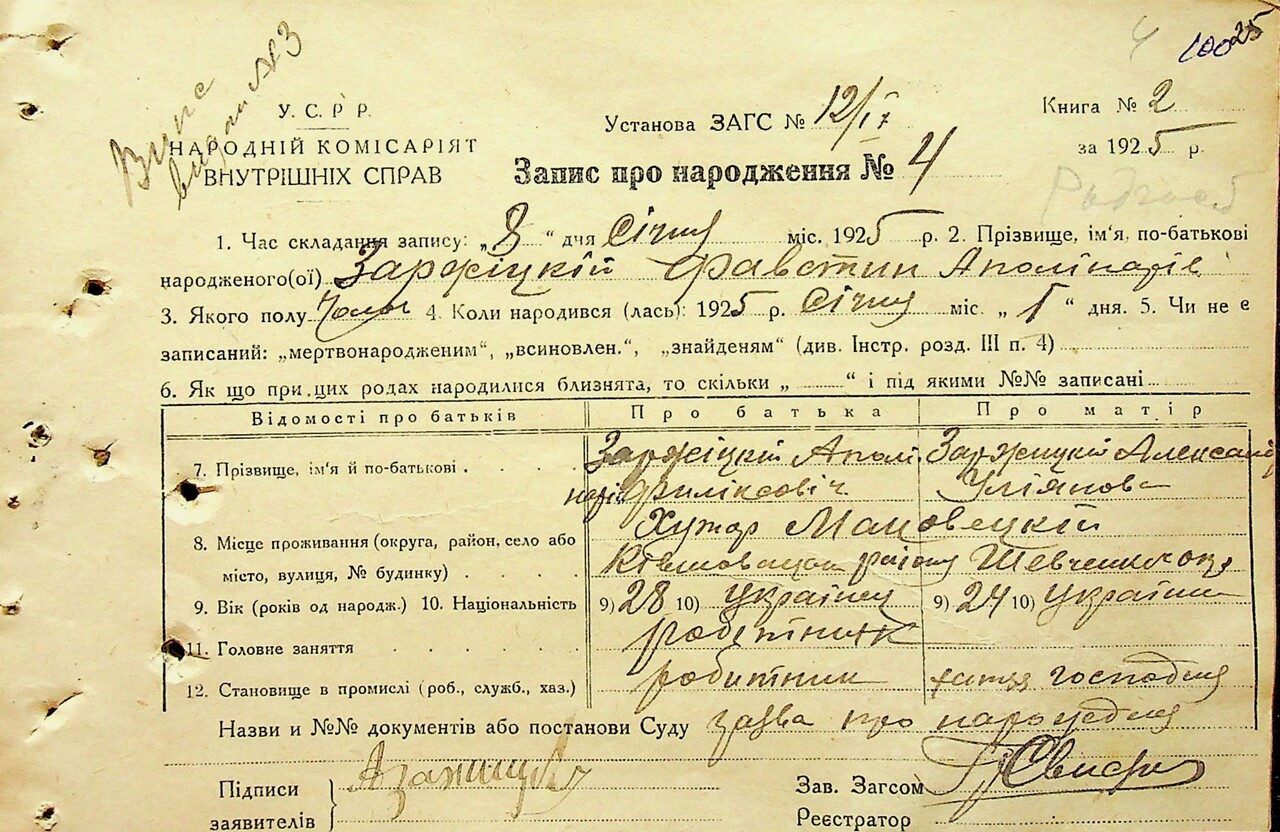 10025
Випис
видано №3
У.С.Р.Р.
НАРОДНІЙ КОМІСАРІЯТ
ВНУТРІШНІХ СПРАВ
Установа ЗАГС №
Книга № 2
за 1925 р.
Запис про народження № 4
1. Час складання запису: „8“ дня Січня міс. 1925 р. 2. Прізвище, ім'я, по-батькові
народженого(ої) Заржіцкій Фавстин Аполінарів
3. Якого полу Чолов 4. Коли народився (лась): 1925 р. Січня міс. „1“ дня. 5. Чи не є
записаний: „мертвонародженим“, „всиновлен.“, „знайденям“ (див. Інстр. розд. III п. 4)
6. Як що при цих родах народилися близнята, то скільки „ “ і під якими №№ записані
Відомості про батьків Про батька Про матір
7. Прізвище, ім'я й по-батькові Заржіцкій Аполі Заржицкій Александ
нарій Филіксовіч Уліянова
8. Місце проживання (округа, район, село або Хутор Мацовецкій
місто, вулиця, № будинку) району Шевченк окр
9. Вік (років од народж.) 10. Національність 9) 28 10) Українец 9) 24 10) Українк
11. Головне заняття робітник
12. Становище в промислі (роб., служб., хаз.) робитник хатня господиня
Назви и №№ документів або постанови Суду заява про народження
Підписи
заявителів
Зав. Загсом
Реєстратор